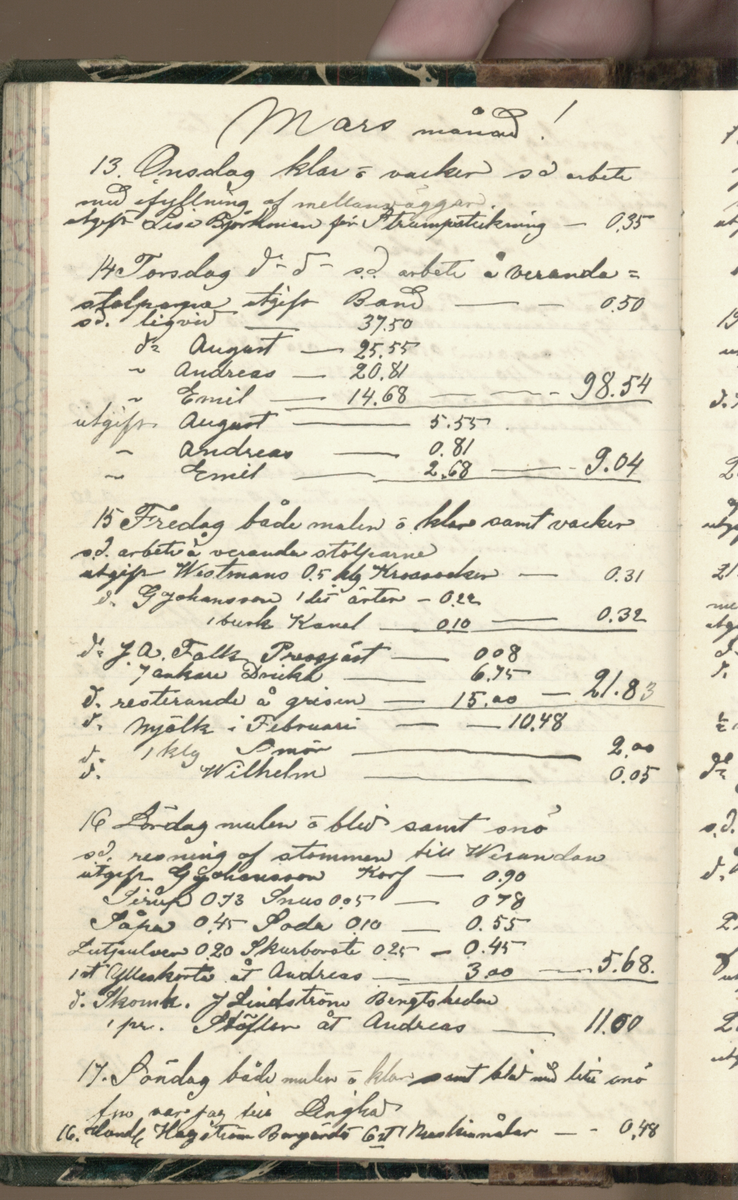 Mars månad!
13. Onsdag klar o vacker s.d arbete
med ifyllning af mellanväggar.
utgift Lise Björkman för Strumpstickning — 0.35
14 Torsdag d:o d:o s.d arbete å veranda =
stolparna utgift Band — — 0.50
s.d. liqvid — 37.50
d:o August — 25.55
" Andreas — 20.81
" Emil — 14.68 — — 98.54
utgift August — 5.55
" Andreas — 0.81
" Emil — 2.68 — 9.04
15 Fredag både mulen o klar samt vacker
s.d. arbete å veranda stolparne
utgift Westmans 0.5 klg — 0.31
d. G Johansson 1 lit ärter — 0.22
1 burk Kanel — 0.10 — 0.32
d:o J A. Falk Pressjäst — 0.08
7 ankare Dricka — 6.75
d. resterande å grisen — 15.00 — 21.83
d. Mjölk i Februari — — 10.48
d. 1 klg Smör — 2.00
d. Wilhelm — 0.05
16 Lördag mulen o blid samt snö
s.d. resning af stommen till Werandan
utgift G Johansson Korf — 0.90
Sirup 0.73 Snus 0.05 — 0.78
Såpa 0.45 Soda 0.10 — 0.55
Lutpulver 0.20 Skurborste 0.25 — 0.45
1 st Ylleskorta åt Andreas — 3.00 — 5.68.
d. Skomk. J Lindström Bengtsheden
1 pr. Stöflar åt Andreas — 11.00
17. Söndag både mulen o klar samt blid med lite snö
var jag till
16. Handl Hagström 6 st Maskinnålar — - 0,48